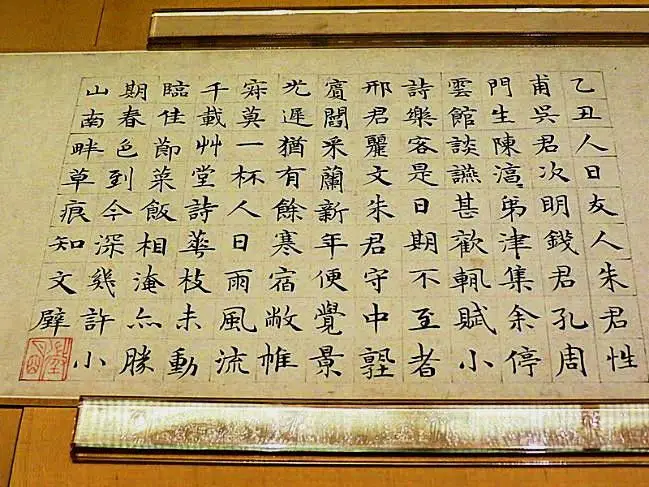 乙丑人日友人朱君性
甫吳君次明錢君孔周
門生陳淳弟津集余停
雲館談讌甚歡輒賦小
詩樂客是日期不至者
邢君麗文朱君守中塾
賓閻采蘭新年便覺景
光遲猶有餘寒宿敝帷
寂莫一杯人日雨風流
千載艸堂詩華枝未動
臨佳節菜飯相淹亦勝
期春色到今深幾許小
山南畔草痕知 文璧